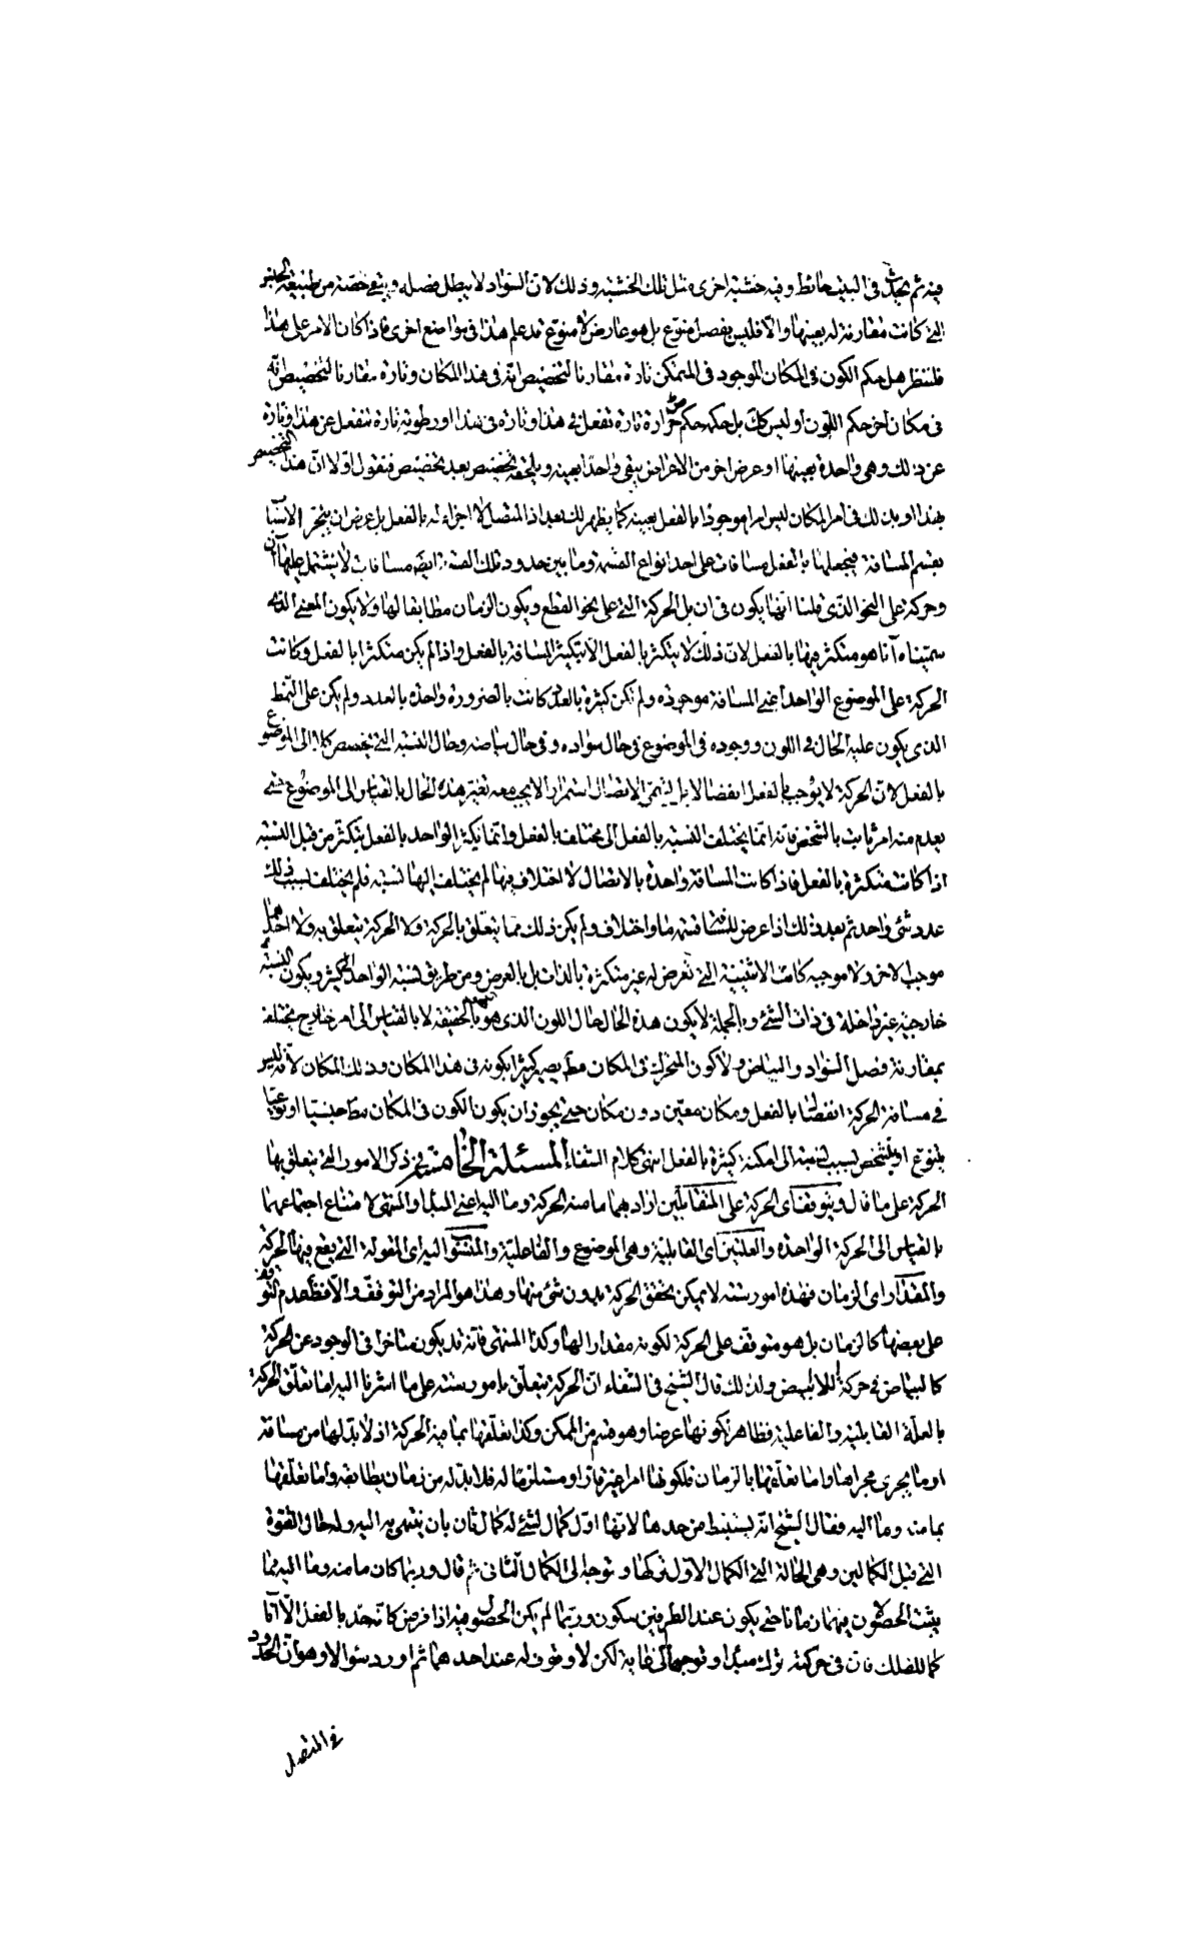 فيه ثم يحدث في البيت حائط وفيه خشبة اخرى مثل تلك الخشبة وذلك لان السواد لا يبطل فصله ويبقى حصته من طبيعة الجنس
التي كانت مقارنة له بعينها والا فليس بفصل منوع بل هو عارض لا منوع قد علم هذا في مواضع اخرى فاذا كان الامر على هذا
فلننظر هل حكم الكون في المكان الموجود في المتمكن تارة مقارنا لتخصيص انه في هذا المكان وتارة مقارنا لتخصيص انه
في مكان آخر حكم اللون او ليس كك بل حكمه حكم حرارة تارة تفعل في هذا وتارة في هذا او رطوبة تارة تنفعل عن هذا وتارة
عن ذلك وهي واحدة بعينها او عرض اخر من الاعراض يبقى واحدا بعينه ويلحقه تخصيص بعد تخصيص فنقول اولا ان هذا التخصيص
بهذا او بذلك في امر المكان ليس امرا موجودا بالفعل بعينه كما يظهر لك بعد اذ المتصل لا اجزاء له بالفعل بل يعرض ان يتجزى لاسباب
تقسم المسافة فيجعلها بالفعل مسافات على احد انواع القسمة وما بين حدود تلك القسمة ايضه مسافات لا يشتمل عليها آن
وحركة على النحو الذي قلنا انها يكون في آن بل الحركة التي على نحو القطع ويكون الزمان مطابقا لها ولا يكون المعنى الذي
سميناه آنا هو متكثر فيها بالفعل لان ذلك لا يتكثر بالفعل الا بتكثر المسافة بالفعل واذا لم يكن متكثرا بالفعل وكانت
الحركة على الموضوع الواحد اعني المسافة موجودة ولم تكن كثيرة بالعدد كانت بالضرورة واحدة بالعدد ولم يكن على النمط
الذي يكون عليه الحال في اللون ووجوده في الموضوع في حال سواده وفي حال بياضه وحال النسبة التي تخصص كلا الى الموضوع
بالفعل لان الحركة لا يوجب بالفعل انفصالا بل يستمر الاتصال استمرارا لا يجب معه تغير هذه الحال بالقياس الى الموضوع حتى
يعدم منه امر ثابت بالشخص فانه انما يختلف النسبة بالفعل الى مختلف بالفعل وانما يكثر الواحد بالفعل بتكثر من قبل النسبة
اذا كانت متكثرة بالفعل فاذا كانت المسافة واحدة بالاتصال لا اختلاف فيها لم يختلف اليها نسبة فلم يختلف بسبب ذلك
عدد شئ واحد ثم بعد ذلك اذا عرض للمسافة قسمة ما واختلاف ولم يكن ذلك مما يتعلق بالحركة ولا الحركة يتعلق به ولا احدهما
موجب لاخر ولا موجبه كانت الاثنينية التي تعرض له غير متكثرة بالذات بل بالعرض ومن طريق نسبة الواحد الى كثير ويكون النسبة
خارجية غير داخلة في ذات الشئ وبالجملة لا يكون هذه الحال حال اللون الذي هو بالحقيقة لا بالقياس الى امر خارج مختلف
بمقارنة فصل السواد والبياض ولا كون المتحرك في المكان مط يصير كثيرا بكونه في هذا المكان وذلك المكان لانه ليس
في مسافة الحركة انفصال بالفعل ومكان معين دون مكان حتى يجوز ان يكون الكون في المكان مط جنسيا او نوعيا
يتنوع او يتشخص بسبب نسبته الى امكنة كثيرة بالفعل انتهى كلام الشفاء المسئلة الخامسة في ذكر الامور التي يتعلق بها
الحركة على ما قال ويتوقف اى الحركة على المتقابلين اراد بهما ما منه الحركة وما اليه اعني المبدا والمنتهى لامتناع اجتماعهما
بالقياس الى الحركة الواحدة والعلتين اى القابلية وهي الموضوع والفاعلية والمنسوب اليه اى المقولة التي يقع فيها الحركة
والمقدار اى الزمان فهذه امور ستة لا يمكن تحقق الحركة بدون شئ منها وهذا هو المراد من التوقف والا فظ عدم التوقف
على بعضها كالزمان بل هو متوقف على الحركة لكونه مقدارا لها وكذا المنتهى فانه قد يكون متاخرا في الوجود عن الحركة
كالبياض في حركة الابيضاض ولذلك قال الشيخ في الشفاء ان الحركة يتعلق بامور ستة على ما اشرنا اليه اما تعلق الحركة
بالعلة القابلية والفاعلية فظاهر لكونها عرضا وهو قسم من الممكن وكذا تعلقها بما فيه الحركة اذ لا بد لها من مسافة
او ما يجري مجراها واما تعلقها بالزمان فلكونها امرا غير قار او مستلزما له فلا بد له من زمان يطابقه واما تعلقها
بما منه وما اليه فقال الشيخ انه يستنبط من حدها لانها اول كمال لشئ له كمال ثان بان ينتهي به اليه وله حال القوة
التي قبل الكمالين وهي الحالة التي الكمال الاول تركها وتوجه الى الكمال الثاني ثم قال وربما كان ما منه وما اليه مما
يثبت الحصول فيهما زمانا حتى يكون عند الطرفين سكون وربما لم يكن الحصول فيه اذا فرض كانه حد بالفعل الا آنا
كما للفلك فان في حركته ترك مبدا وتوجها الى غاية لكن لا وقوف له عند احدهما ثم اورد سؤالا وهو ان الحدود
في المتصل